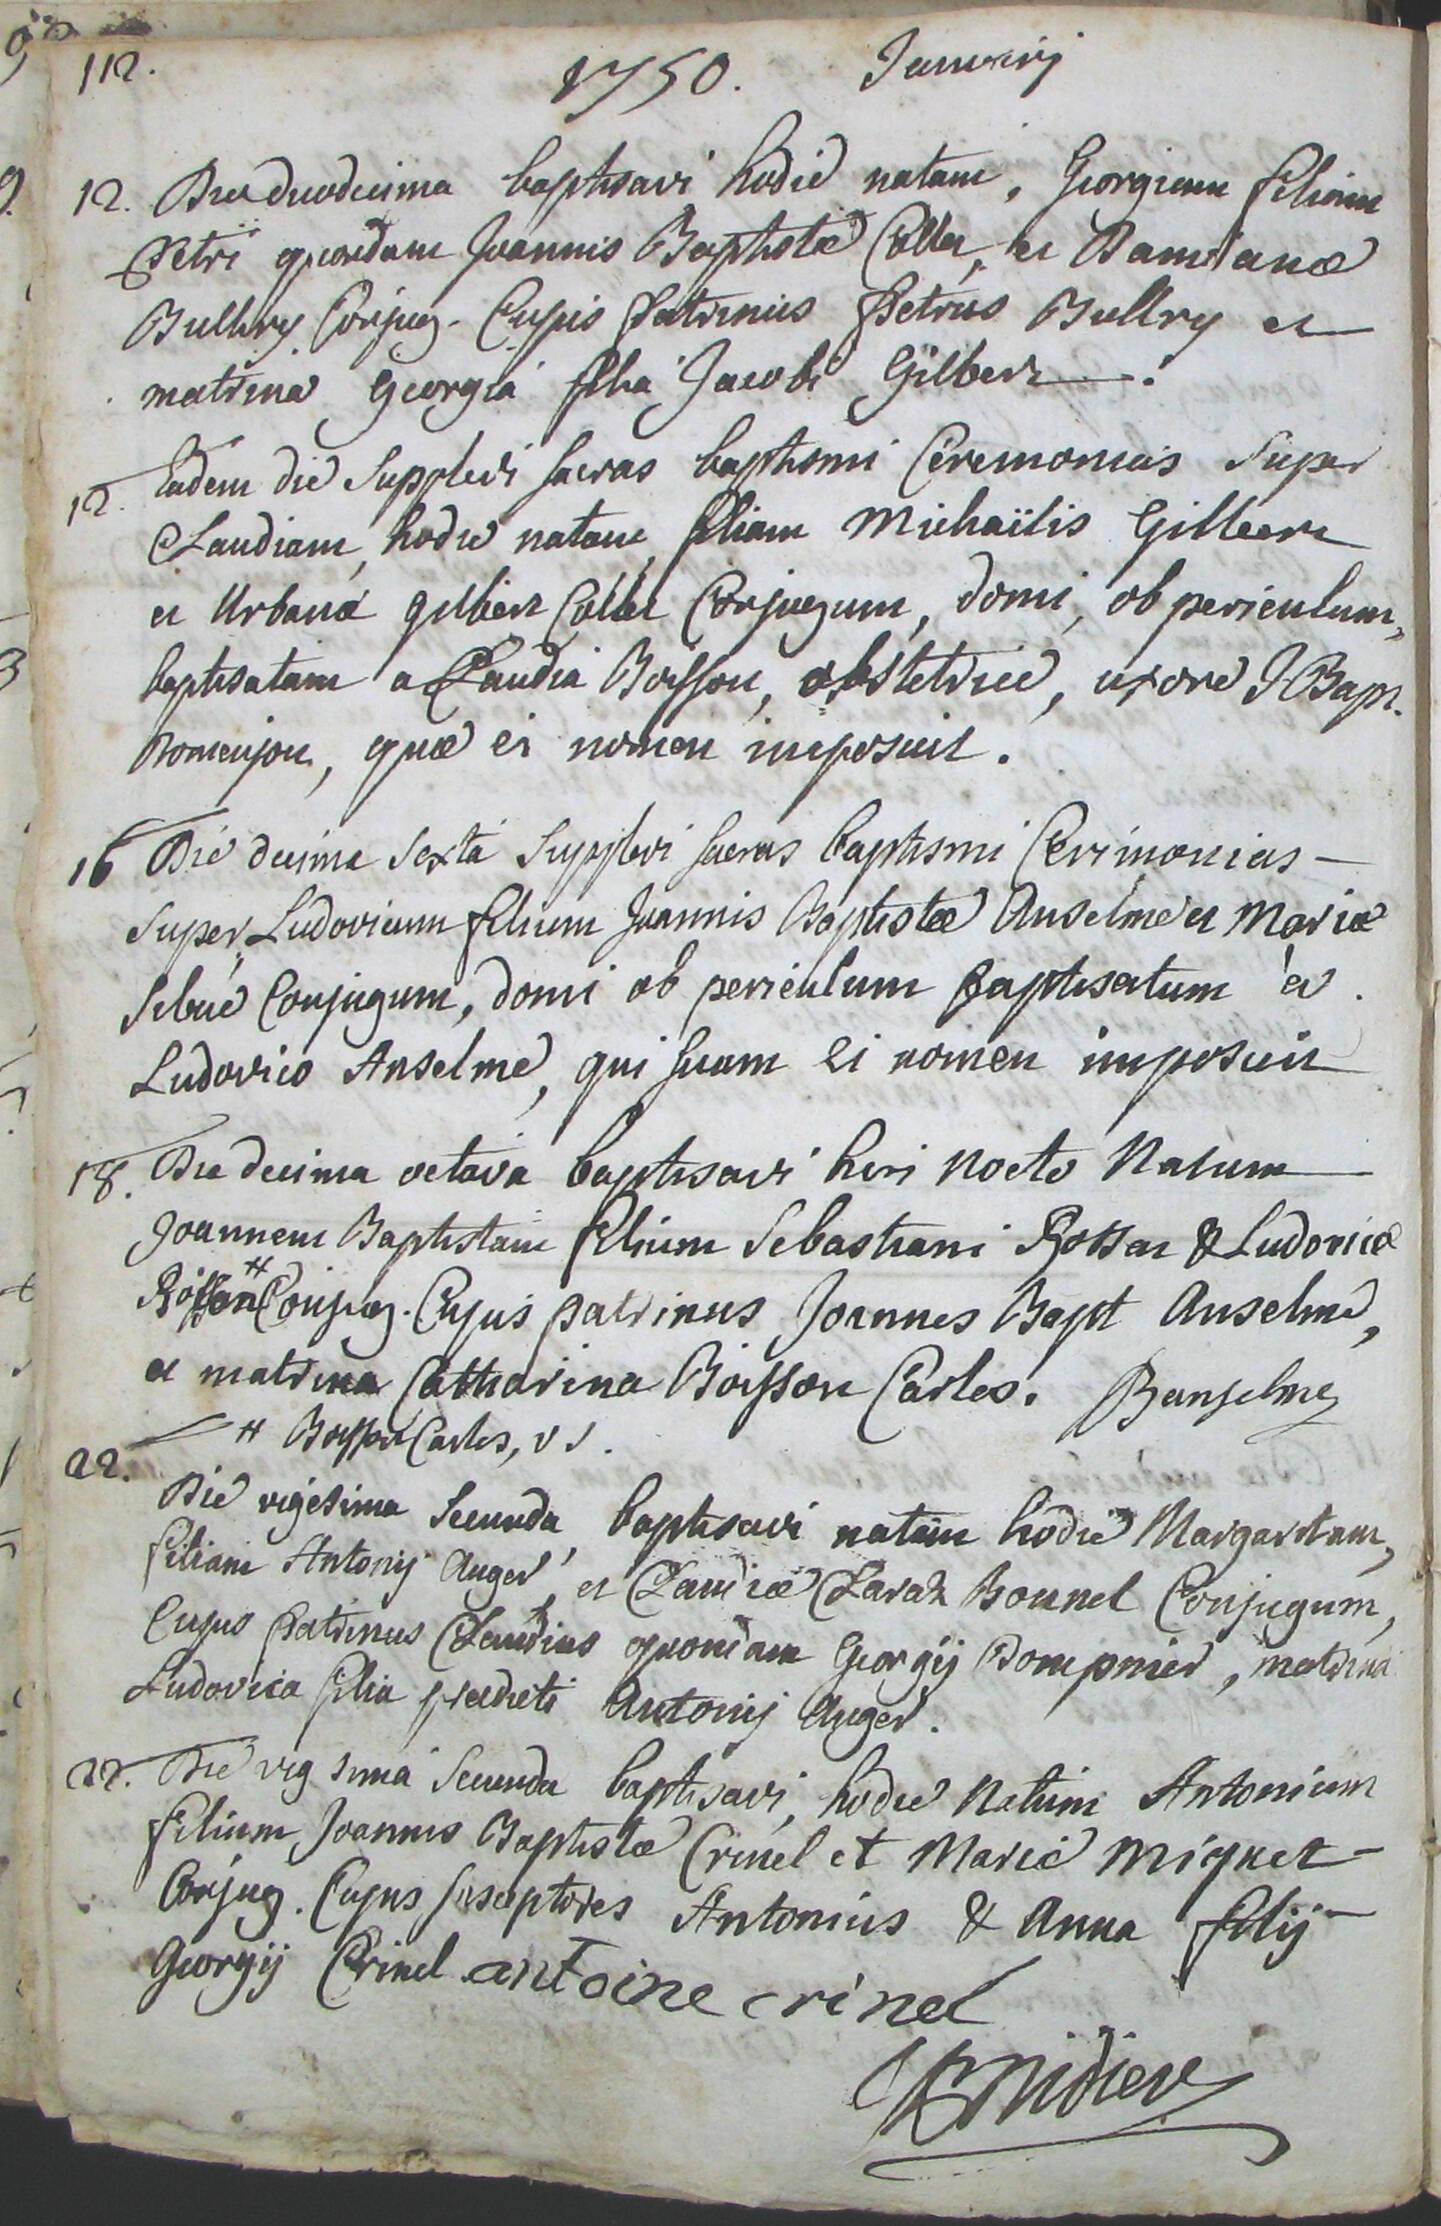 112.
1750. Januarij
12. Die duodecima baptisavi hodie natam, Georgiam filiam
Petri quondam Joannis Baptistæ Collet, et Damianæ
Bullry Conjug. Cujus Patrinus Petrus Bullry et
matrina Georgia filia Jacobi Gilbert.
12. Eadem die Supplevi sacras baptismi Ceremonias Super
Claudiam, hodie natam, filiam Michaïlis Gilbert
et Urbana gilbert Collet Conjugum, domi, ob periculum,
baptisatam a Claudia Boisson, obstetrice, uxore J Bapt.
Domenjon, quæ ei nomen imposuit.
16 Die decima Sexta Supplevi sacras baptismi Cerimonias
Super Ludovicum filium Joannis Baptistæ Anselme et Mariæ
Conjugum, domi ob periculum baptisatum a
Ludovico Anselme, qui suum ei nomen imposuit
18. Die decima octava baptisavi heri nocte Natum
Joannem Baptistam filium Sebastiani & Ludovicæ
# Conjug. Cujus patrinus Joannes Bapt Anselme,
et matrina Catharina Boisson Carles. Banselme
# Boisson Carles,
22. Die vigesima Secunda, baptisavi natam hodie Margaritam,
filiam Antonij Auger, et Claudiæ Claraz Bonnel Conjugum,
Cujus Patrinus Claudius quondam Georgij Dompnier, matrina
Ludovica filia prædicti Antonij Auger.
22. Die vigesima Secunda baptisavi, hodie Natum Antonium
filium Joannis Baptistæ Crinel et Mariæ Miquet
Conjug. Cujus susceptores Antonius & Anna filij
Georgij Crinel antoine crinel